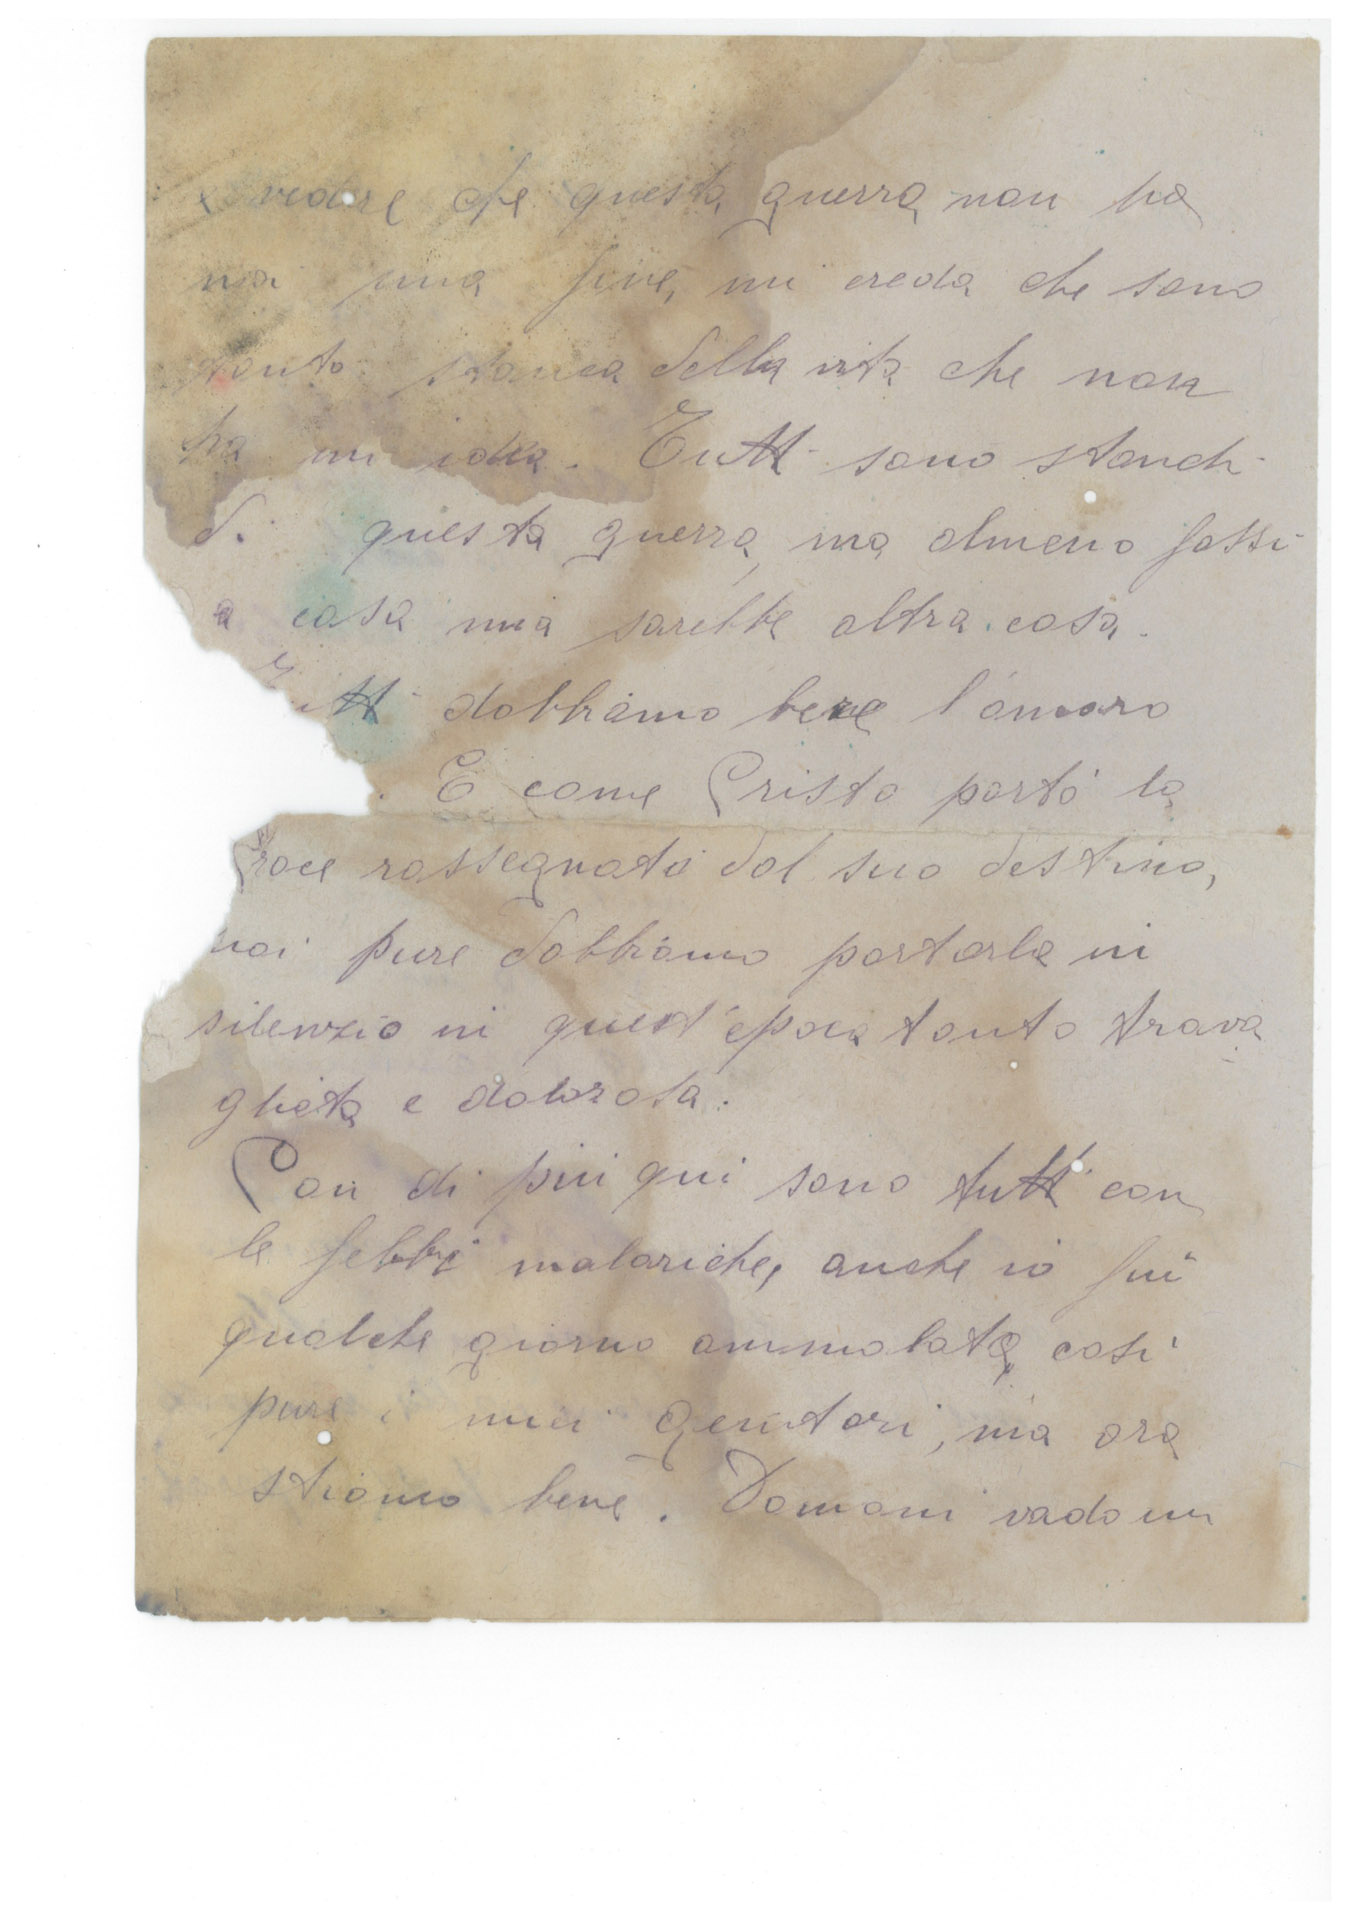 e vedere che questa guerra non ha
mai una fine, mi creda che sono
tanto stanca della vita che non
ha un idea. Tutti sono stanchi
di questa guerra, ma almeno fossi
a casa mia sarebbe altra cosa.
Tutti dobbiamo bere l'amaro
. E come Cristo portò la
Croce rassegnato dal suo destino,
noi pure dobbiamo portarla in
silenzio in quest'epoca tanto trava
gliata e dolorosa.
Con di più qui sono tutti con
le febbri malariche, anche io fui
qualche giorno ammalata, così
pure i miei genitori, ma ora
stiamo bene. Domani vado un